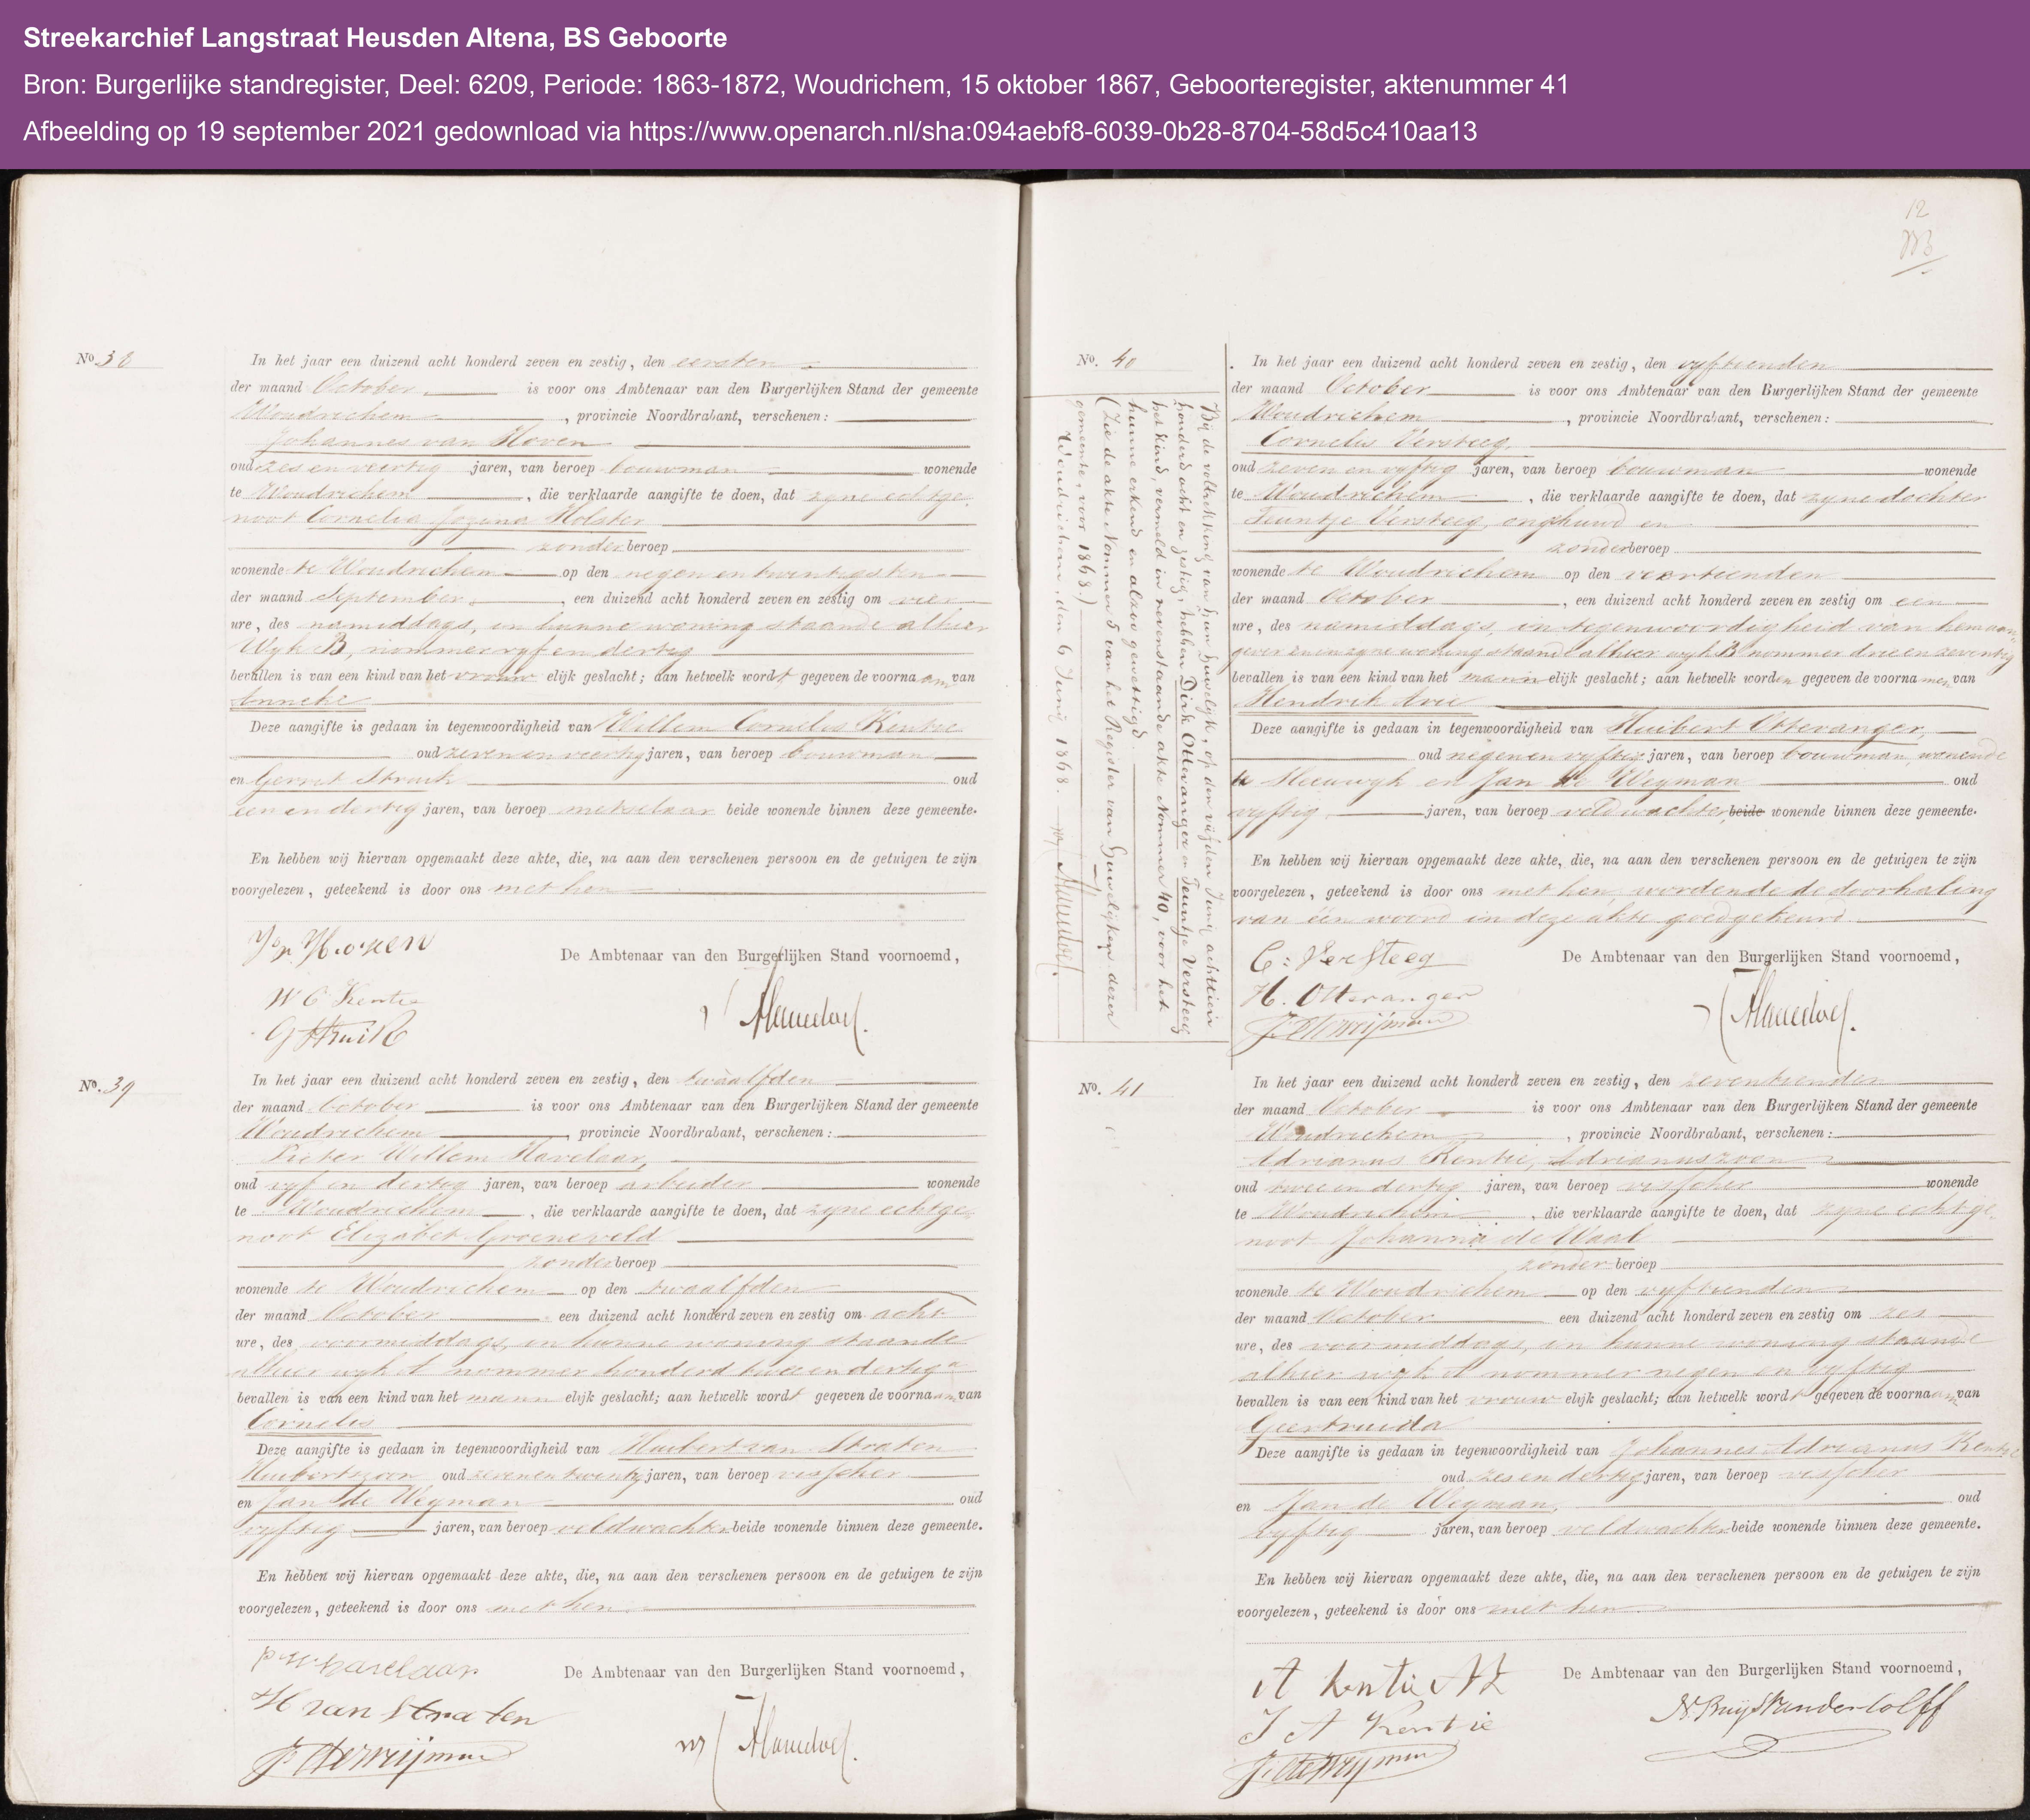 Streekarchief Langstraat Heusden Altena, BS Geboorte
Bron: Burgerlijke standregister, Deel: 6209, Periode: 1863-1872, Woudrichem, 15 oktober 1867, Geboorteregister, aktenummer 41
Afbeelding op 19 september 2021 gedownload via https://www.openarch.nl/sha:094aebf8-6039-0b28-8704-58d5c410aa13
No. 38
In het jaar een duizend acht honderd zeven en zestig, den eersten
der maand October is voor ons Ambtenaar van den Burgerlijken Stand der gemeente
Woudrichem, provincie Noordbrabant, verschenen:
Johannes van Hoven
oud zes en veertig jaren, van beroep bouwman wonende
te Woudrichem, die verklaarde aangifte te doen, dat zyne echtge-
noot Cornelia Jozina Holster
zonder beroep
wonende te Woudrichem op den negen en twintigsten
der maand September, een duizend acht honderd zeven en zestig om vier
ure, des namiddags, in hunne woning staande alhier
Wyk B, nommer vyf en dertig
bevallen is van een kind van het vrouwelijk geslacht; aan hetwelk wordt gegeven de voornaam van
Anneke
Deze aangifte is gedaan in tegenwoordigheid van Willem Cornelis Kentie
oud zeven en veertig jaren, van beroep bouwman
en Gerrit Struik oud
een en dertig jaren, van beroep metselaar beide wonende binnen deze gemeente.
En hebben wij hiervan opgemaakt deze akte, die, na aan den verschenen persoon en de getuigen te zijn
voorgelezen, geteekend is door ons met hen
De Ambtenaar van den Burgerlijken Stand voornoemd,
W C Kentie
G Struik
No. 39
In het jaar een duizend acht honderd zeven en zestig, den twaalfden
der maand October is voor ons Ambtenaar van den Burgerlijken Stand der gemeente
Woudrichem, provincie Noordbrabant, verschenen:
Pieter Willem Havelaar,
oud vyf en dertig jaren, van beroep arbeider wonende
te Woudrichem, die verklaarde aangifte te doen, dat zyne echtge-
noot Elizabet Groeneveld
zonder beroep
wonende te Woudrichem op den twaalfden
der maand October een duizend acht honderd zeven en zestig om acht
ure, des voormiddags, in hunne woning staande
alhier wyk A nommer honderd twee en dertig a
bevallen is van een kind van het mannelijk geslacht; aan hetwelk wordt gegeven de voornaam van
Cornelis
Deze aangifte is gedaan in tegenwoordigheid van Huibert van Straten
Huibertszoon oud zeven en twintig jaren, van beroep visscher
en Jan de Weyman oud
vyftig jaren, van beroep veldwachter beide wonende binnen deze gemeente.
En hebben wij hiervan opgemaakt deze akte, die, na aan den verschenen persoon en de getuigen te zijn
voorgelezen, geteekend is door ons met hen
P W Havelaar De Ambtenaar van den Burgerlijken Stand voornoemd,
H van Straten
12
No. 40
Bij de voltrekking van hun huwelijk, op den vijfden Junij achttien
honderd acht en zestig, hebben Dirk Ottevanger en Teuntje Versteeg
het kind, vermeld in nevenstaande akte Nommer 40, voor het
hunne erkend en alzoo gewettigd.
(Zie de akte Nommer 5 van het Register van Huwelijken dezer
gemeente, voor 1868.)
Woudrichem, den 6 Junij 1868.
In het jaar een duizend acht honderd zeven en zestig, den vyftienden
der maand October is voor ons Ambtenaar van den Burgerlijken Stand der gemeente
Woudrichem, provincie Noordbrabant, verschenen:
Cornelis Versteeg,
oud zeven en vyftig jaren, van beroep bouwman wonende
te Woudrichem, die verklaarde aangifte te doen, dat zyne dochter
Teuntje Versteeg, ongehuwd en
zonder beroep
wonende te Woudrichem op den veertienden
der maand October, een duizend acht honderd zeven en zestig om een
ure, des namiddags, in tegenwoordigheid van hem aan-
gever en in zyne woning staande alhier wyk B nommer drie en zeventig
bevallen is van een kind van het mannelijk geslacht; aan hetwelk worden gegeven de voornamen van
Hendrik Arie
Deze aangifte is gedaan in tegenwoordigheid van Huibert Ottevanger,
oud negen en vyftig jaren, van beroep bouwman, wonende
te Sleeuwyk en Jan de Weyman oud
vyftig jaren, van beroep veldwachter, beide wonende binnen deze gemeente.
En hebben wij hiervan opgemaakt deze akte, die, na aan den verschenen persoon en de getuigen te zijn
voorgelezen, geteekend is door ons met hen, wordende de doorhaling
van één woord in deze akte goedgekeurd.
C: Versteeg De Ambtenaar van den Burgerlijken Stand voornoemd,
H. Ottevanger
No. 41
In het jaar een duizend acht honderd zeven en zestig, den zeventienden
der maand October is voor ons Ambtenaar van den Burgerlijken Stand der gemeente
Woudrichem, provincie Noordbrabant, verschenen:
Adrianus Kentie, Adrianuszoon
oud twee en dertig jaren, van beroep visscher wonende
te Woudrichem, die verklaarde aangifte te doen, dat zyne echtge-
noot Johanna de Waal
zonder beroep
wonende te Woudrichem op den vyftienden
der maand October een duizend acht honderd zeven en zestig om zes
ure, des voormiddags, in hunne woning staande
alhier wyk A nommer negen en vyftig
bevallen is van een kind van het vrouwelijk geslacht; aan hetwelk wordt gegeven de voornaam van
Geertruida
Deze aangifte is gedaan in tegenwoordigheid van Johannes Adrianus Kentie
oud zes en dertig jaren, van beroep visscher
en Jan de Weyman, oud
vyftig jaren, van beroep veldwachter beide wonende binnen deze gemeente.
En hebben wij hiervan opgemaakt deze akte, die, na aan den verschenen persoon en de getuigen te zijn
voorgelezen, geteekend is door ons met hen.
A Kentie AZ De Ambtenaar van den Burgerlijken Stand voornoemd,
J A Kentie